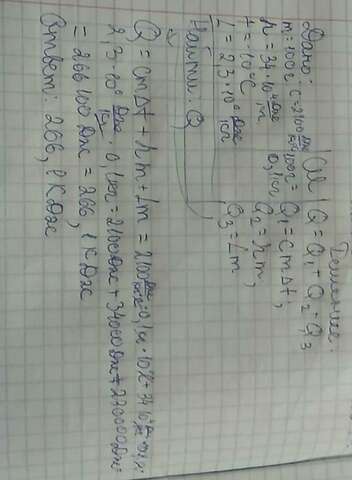 Дано: | СИ | Решение:
m=100г | 0,1кг | Q = Q₁+Q₂+Q₃
c=2100 Дж/кг°C | Q₁=cmΔt;
λ=34·10⁴ Дж/кг | Q₂=λm;
t=-10°C | Q₃=Lm
L=2,3·10⁶ Дж/кг
Найти: Q
Q = cmΔt + λm + Lm = 2100 · 0,1кг · 10°C + 34·10⁴ · 0,1кг +
2,3·10⁶ Дж/кг · 0,1кг = 2100Дж + 34000Дж + 230000Дж =
= 266100Дж = 266,1кДж
Ответ: 266,1кДж